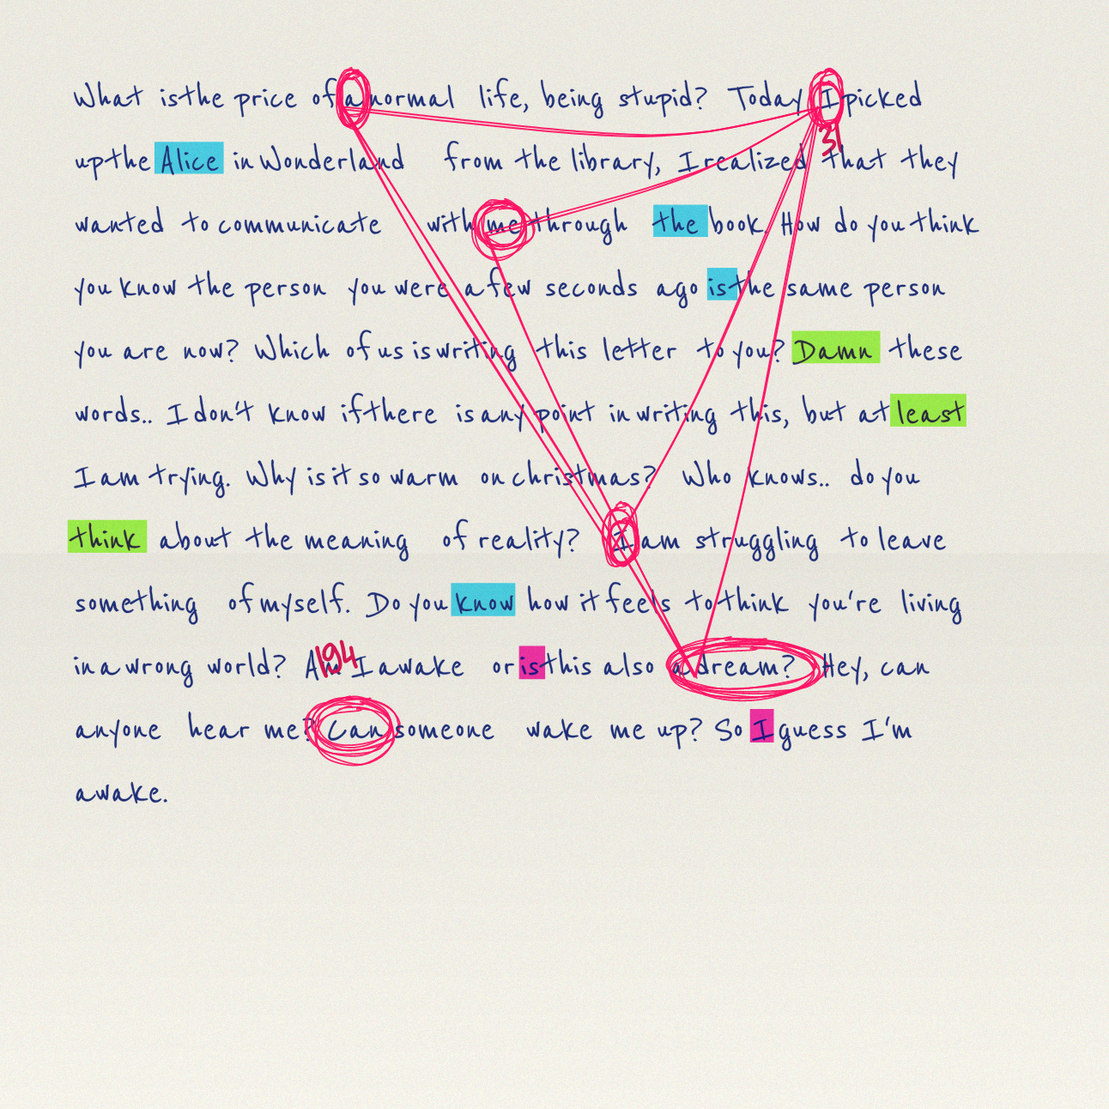 What is the price of a normal life, being stupid? Today I picked
31
up the Alice in Wonderland from the library, I realized that they
wanted to communicate with me through the book. How do you think
you know the person you were a few seconds ago is the same person
you are now? Which of us is writing this letter to you? Damn these
words.. I don't know if there is any point in writing this, but at least
I am trying. Why is it so warm on christmas? Who knows.. do you
think about the meaning of reality? I am struggling to leave
something of myself. Do you know how it feels to think you're living
in a wrong world? Am I awake or is this also a dream? Hey, can
194
anyone hear me? Can someone wake me up? So I guess I'm
awake.